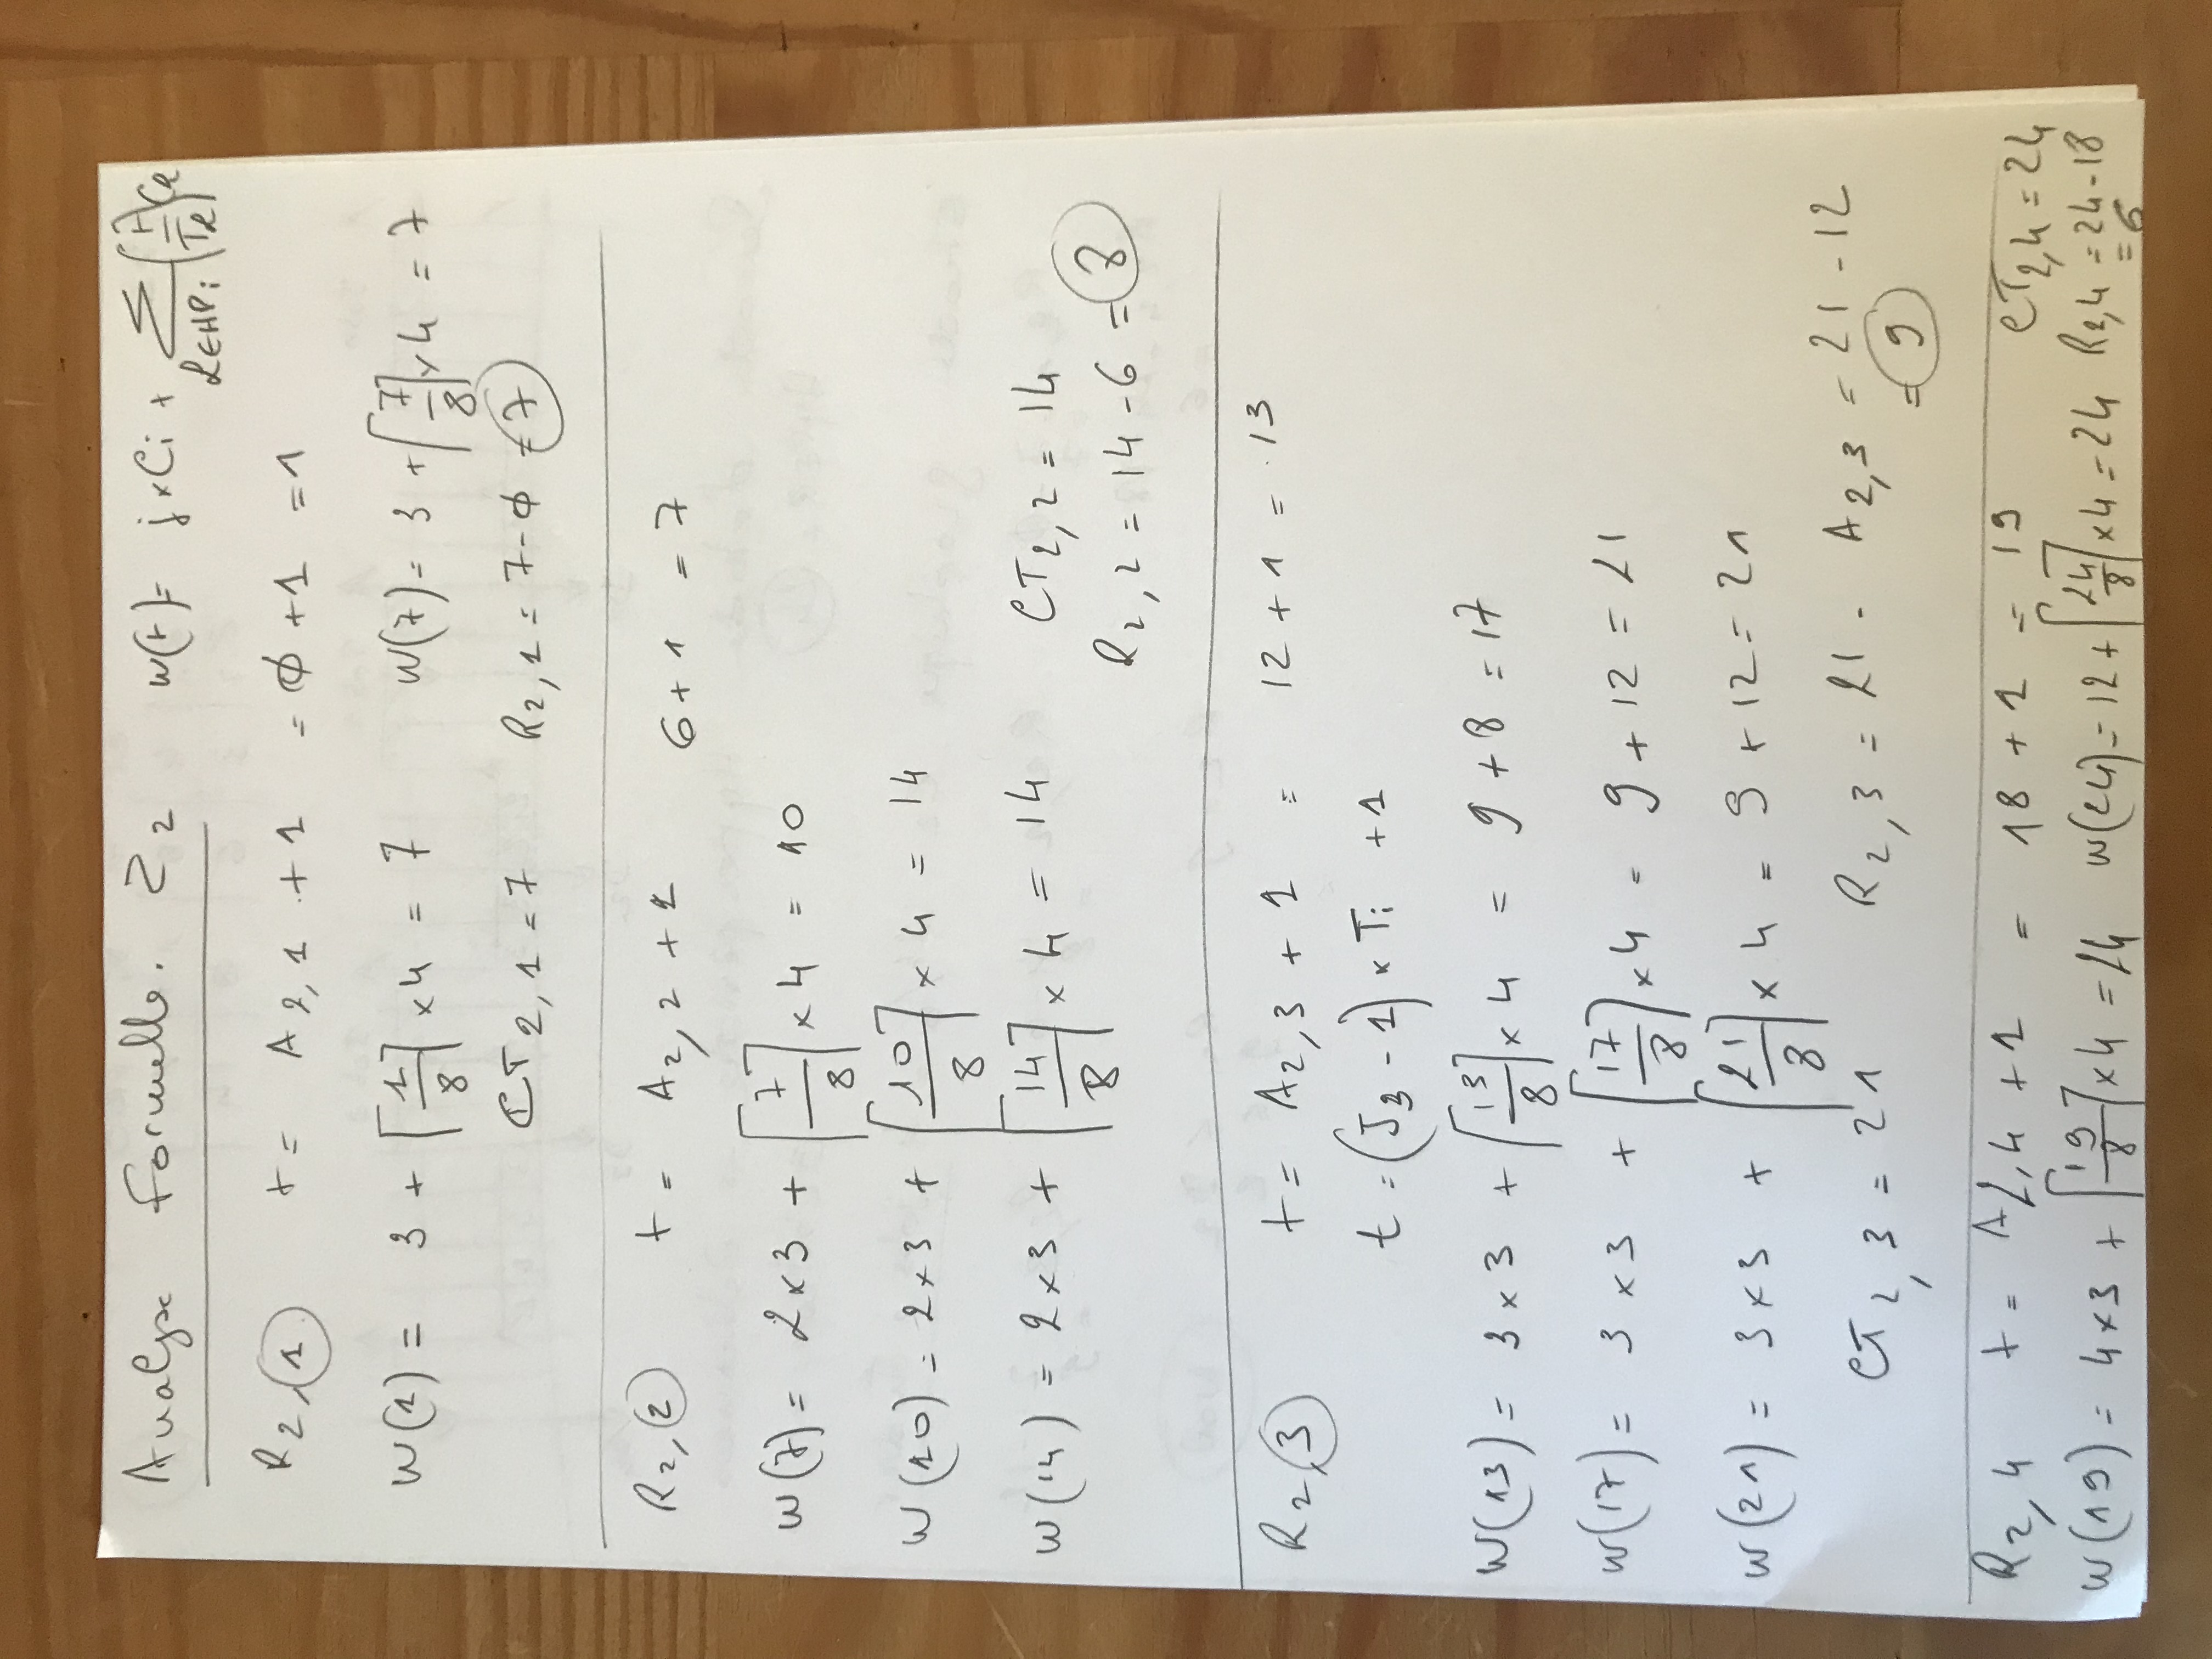 Analyse formelle. Z2 w(t)= j×Ci + ∑ k∈HPi ⌈t/Tk⌉Ck
R2,1 t = A2,1 + 1 = ϕ + 1 = 1
w(1) = 3 + ⌈1/8⌉×4 = 7 w(7) = 3 + ⌈7/8⌉×4 = 7
CT2,1 = 7 R2,1 = 7-ϕ = 7
R2,2 t = A2,2 + 1 6+1 = 7
w(7) = 2×3 + ⌈7/8⌉×4 = 10
w(10) = 2×3 + ⌈10/8⌉×4 = 14
w(14) = 2×3 + ⌈14/8⌉×4 = 14 CT2,2 = 14
R2,2 = 14-6 = 8
R2,3 t = A2,3 + 1 = 12+1 = 13
t = (J3 - 1)×Ti +1
w(13) = 3×3 + ⌈13/8⌉×4 = 9+8 = 17
w(17) = 3×3 + ⌈17/8⌉×4 = 9+12 = 21
w(21) = 3×3 + ⌈21/8⌉×4 = 9+12 = 21
CT2,3 = 21 R2,3 = 21 - A2,3 = 21-12
= 9
R2,4 t = A2,4 +1 = 18+1 = 19 CT2,4 = 24
w(19) = 4×3 + ⌈19/8⌉×4 = 24 w(24) = 12 + ⌈24/8⌉×4 = 24 R2,4 = 24-18
= 6